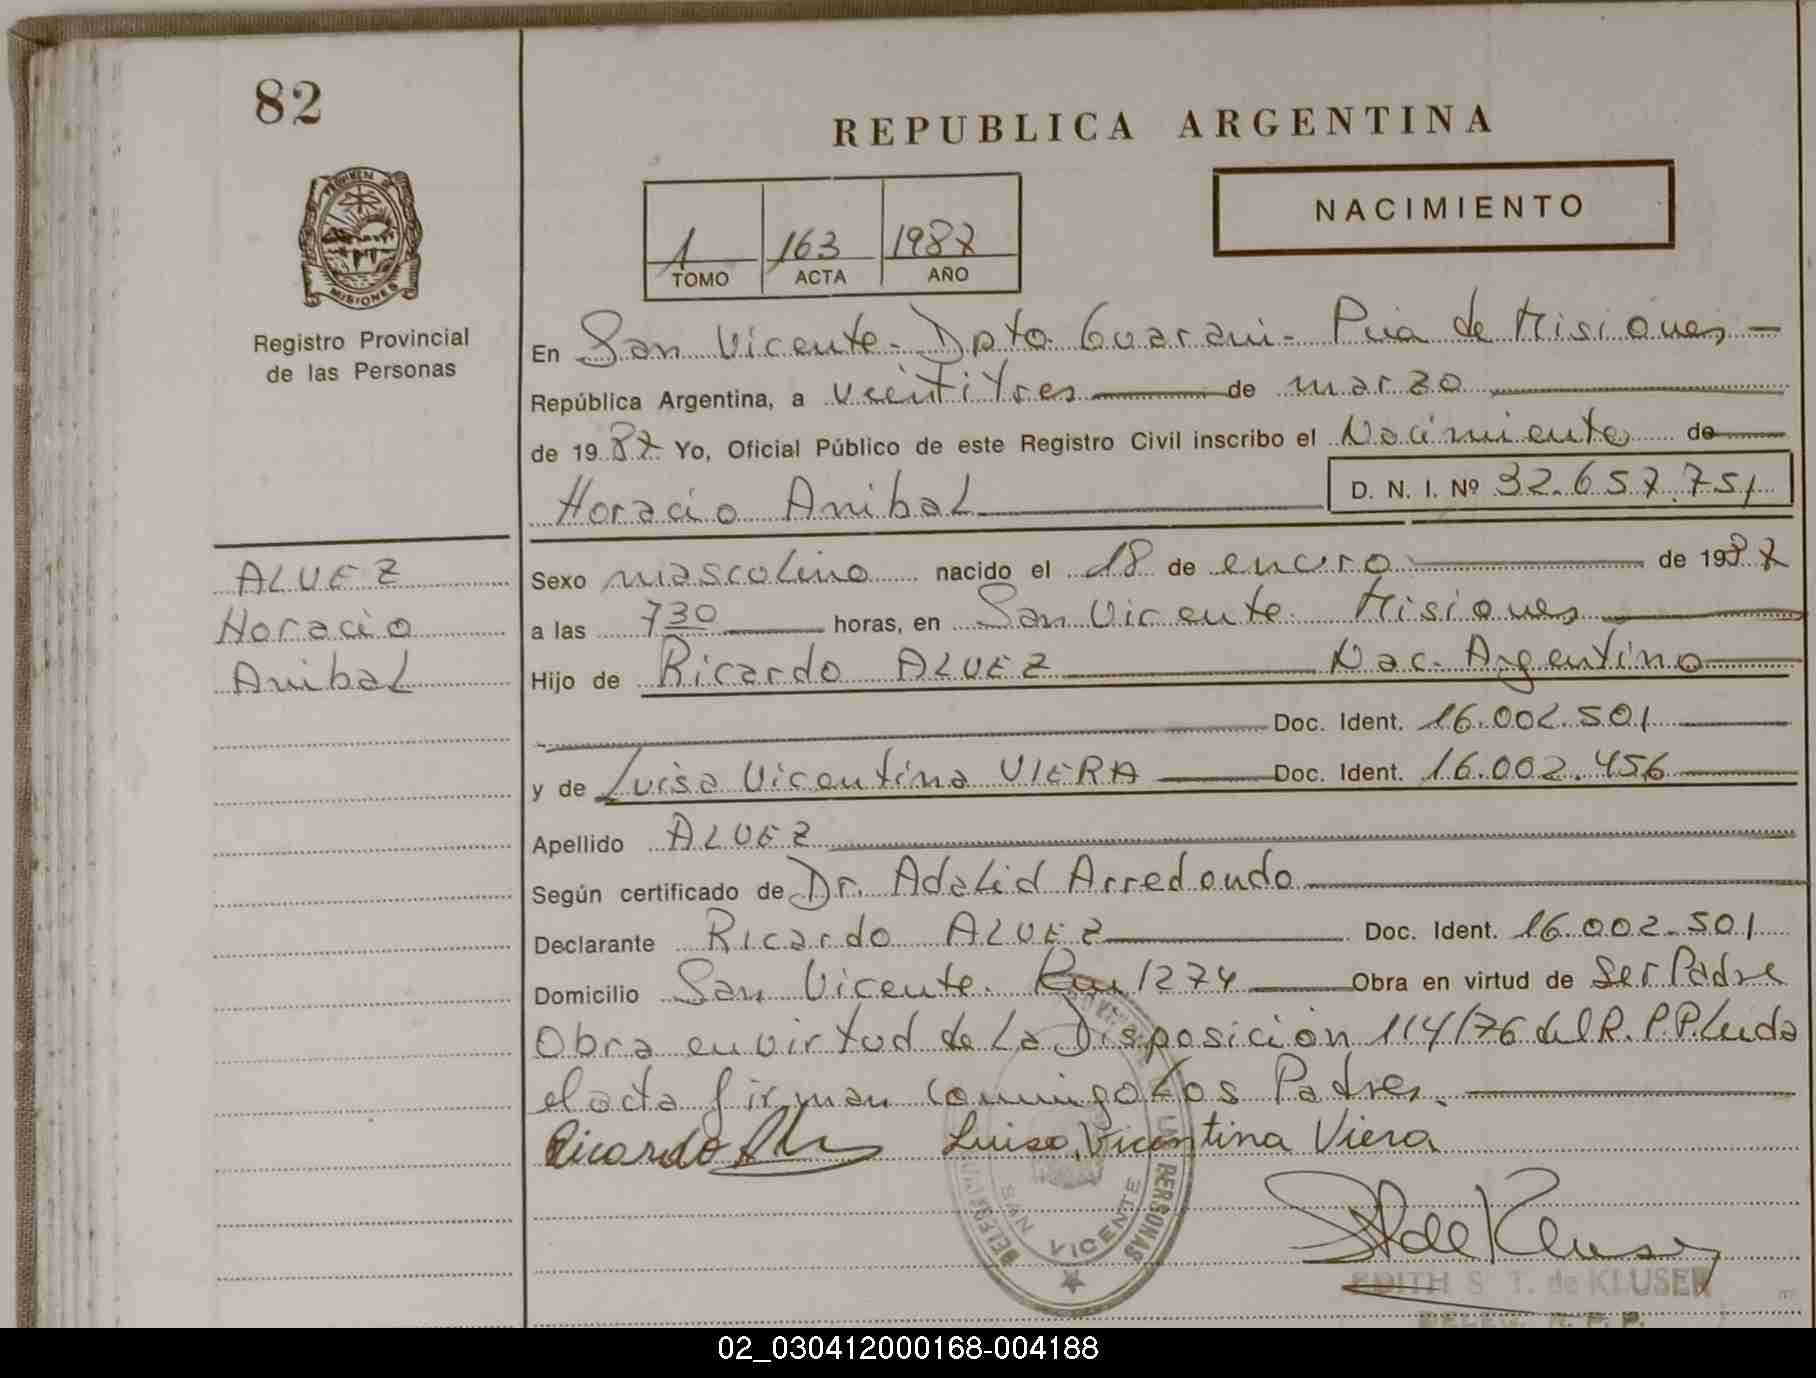 82
REPUBLICA ARGENTINA
NACIMIENTO
1 163 1987
TOMO ACTA AÑO
PROVINCIA DE
MISIONES
Registro Provincial
de las Personas
En San Vicente - Dpto Guarani - Pcia de Misiones -
República Argentina, a veintitres de marzo
de 1987 Yo, Oficial Público de este Registro Civil inscribo el Nacimiento de
Horacio Anibal D. N. I. Nº 32.657.751
ALVEZ
Horacio
Anibal
Sexo masculino nacido el 18 de enero de 1987
a las 730 horas, en San Vicente Misiones
Hijo de Ricardo ALVEZ Nac. Argentino
Doc. Ident. 16.002.501
y de Luisa Vicentina VIERA Doc. Ident. 16.002.456
Apellido ALVEZ
Según certificado de Dr. Adalid Arredondo
Declarante Ricardo ALVEZ Doc. Ident. 16.002.501
Domicilio San Vicente. Km 1274 Obra en virtud de Ser Padre
Obra en virtud de La Disposición 114/76 del R.P.P. Leida
el acta firman conmigo Los Padres.
Ricardo Luisa Vicentina Viera
DE LAS PERSONAS
SAN VICENTE
EDITH S. T. de KLUSER
DELEG. R. P. P.
02_030412000168-004188